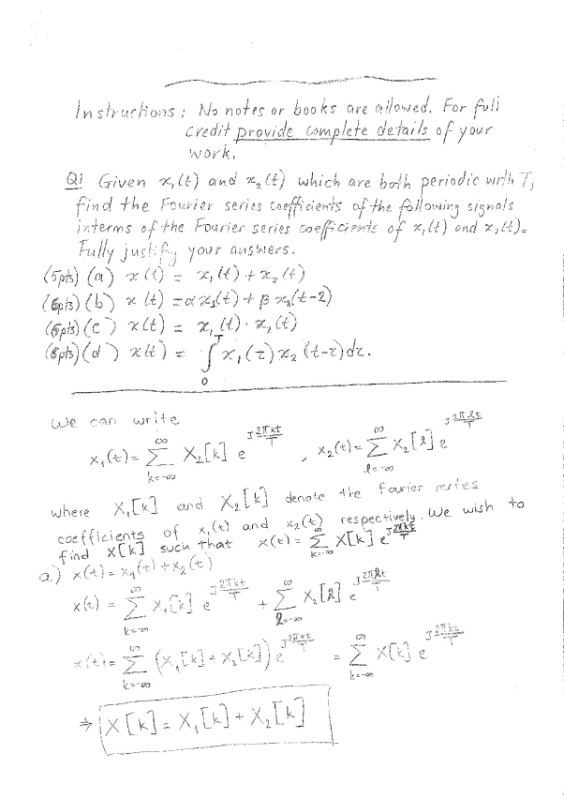 Instructions: No notes or books are allowed. For full
credit provide complete details of your
work.
Q1 Given x₁(t) and x₂(t) which are both periodic with T,
find the Fourier series coefficients of the following signals
interms of the Fourier series coefficients of x₁(t) and x₂(t).
Fully justify your answers.
(5pts) (a) x(t) = x₁(t) + x₂(t)
(6pts) (b) x(t) = α x₁(t) + β x₂(t-2)
(6pts) (c) x(t) = x₁(t) · x₂(t)
(8pts) (d) x(t) = ∫₀ᵀ x₁(τ) x₂(t-τ)dτ.
We can write
x₁(t) = ∑_{k=-∞}^{∞} X₁[k] e^{J2πkt/T} , x₂(t) = ∑_{l=-∞}^{∞} X₂[l] e^{J2πlt/T}
where X₁[k] and X₂[k] denote the fourier series
coefficients of x₁(t) and x₂(t) respectively. We wish to
find X[k] such that x(t) = ∑_{k=-∞}^{∞} X[k] e^{J2πkt/T}
a.) x(t) = x₁(t) + x₂(t)
x(t) = ∑_{k=-∞}^{∞} X₁[k] e^{J2πkt/T} + ∑_{l=-∞}^{∞} X₂[l] e^{J2πlt/T}
x(t) = ∑_{k=-∞}^{∞} (X₁[k] + X₂[k]) e^{J2πkt/T} = ∑_{k=-∞}^{∞} X[k] e^{J2πkt/T}
⇒ X[k] = X₁[k] + X₂[k]